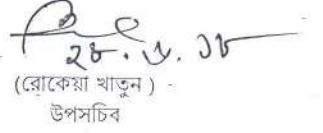 ২৮.৬.১৮
(রোকেয়া খাতুন)
উপসচিব